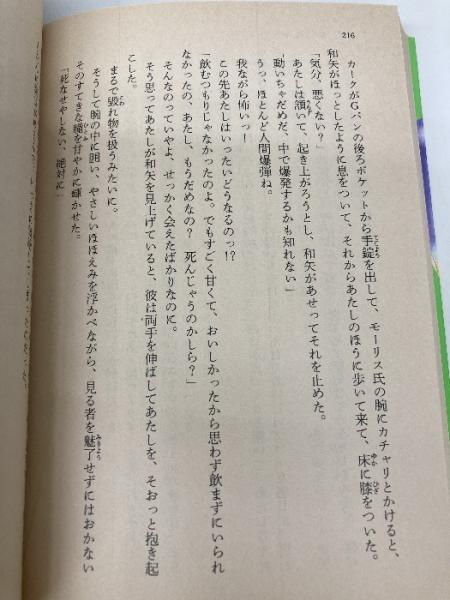 216
カークがGパンの後ろポケットから手錠を出して、モーリス氏の腕にカチャリとかけると、
和矢がほっとしたように息をついて、それからあたしのほうに歩いて来て、床に膝をついた。
「気分、悪くない?」
あたしは頷いて、起き上がろうとし、和矢があせってそれを止めた。
「動いちゃだめだ、中で爆発するかも知れない」
うっ、ほとんど人間爆弾ね。
我ながら怖いっ!
この先あたしはいったいどうなるのっ!?
「飲むつもりじゃなかったのよ。でもすごく甘くて、おいしかったから思わず飲まずにいられ
なかったの、あたし、もうだめなの? 死んじゃうのかしら?」
そんなのっていやよ、せっかく会えたばかりなのに。
そう思ってあたしが和矢を見上げていると、彼は両手を伸ばしてあたしを、そおっと抱き起
こした。
まるで毀れ物を扱うみたいに。
そうして腕の中に囲い、やさしいほほえみを浮かべながら、見る者を魅了せずにはおかない
そのすてきな瞳を甘やかに輝かせた。
「死なせやしない、絶対に」